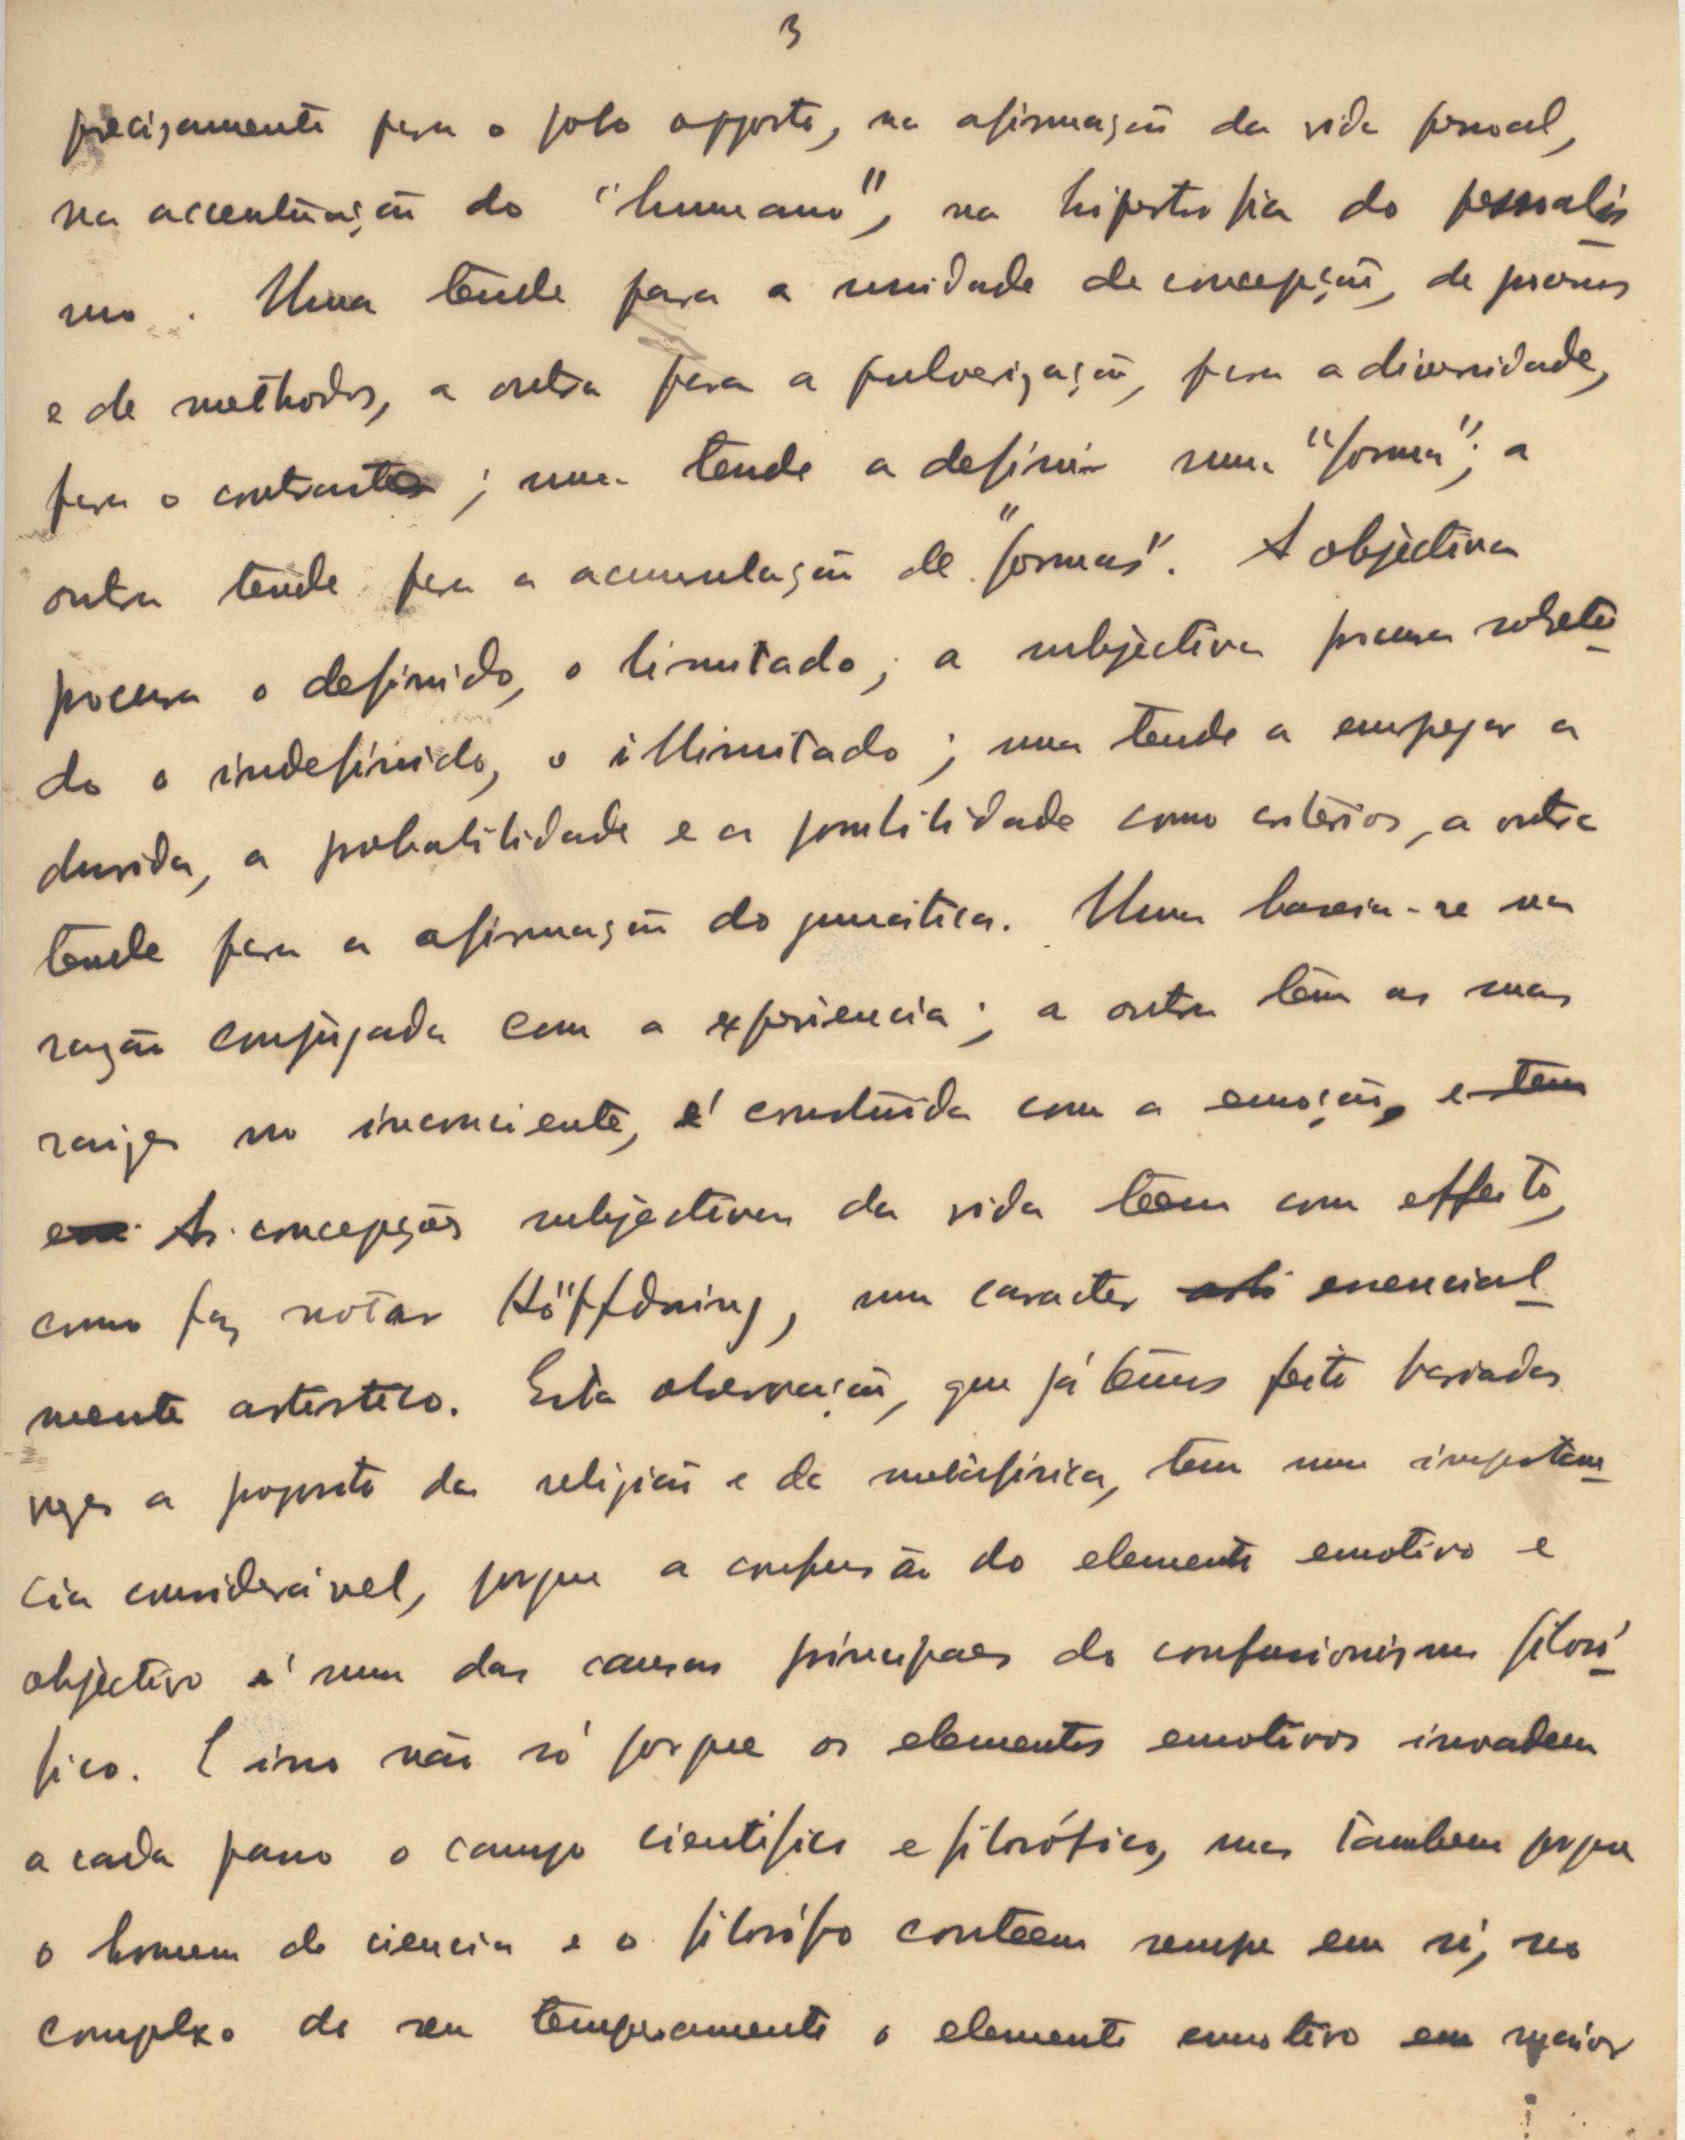 3
precisamente para o polo opposto, na afirmação da vida pessoal,
na accentuação do "humano", na hipertrofia do pessoalis
mo. Uma tende para a unidade de concepção, de
e de methodos, a outra para a pulverização, para a diversidade,
para o contraste; uma tende a definir uma "forma"; a
outra tende para a acumulação de "formas". A objectiva
procura o definido, o limitado; a subjectiva procura sobretu
do o indefinido, o illimitado; uma tende a empregar a
duvida, a probabilidade e a possibilidade como criterios, a outra
tende para a afirmação dogmatica. Uma baseia-se na
razão conjugada com a experiencia; a outra têm as suas
raizes no inconsciente, é construida com a emoção, e tem
em As concepções subjectivas da vida teem com effeito,
como faz notar Höffdning, um caracter essencial
mente artistico. Esta observação, que já temos feito variadas
vezes a proposito da religião e da metafisica, tem uma importan
cia consideravel, porque a confusão do elemento emotivo e
objectivo é uma das causas principaes do confusionismo filoso
fico. E isso não só porque os elementos emotivos invadem
a cada passo o campo cientifico e filosófico, mas tambem porque
o homem de ciencia e o filosófo conteem sempre em si, no
complexo do seu temperamento o elemento emotivo em maior